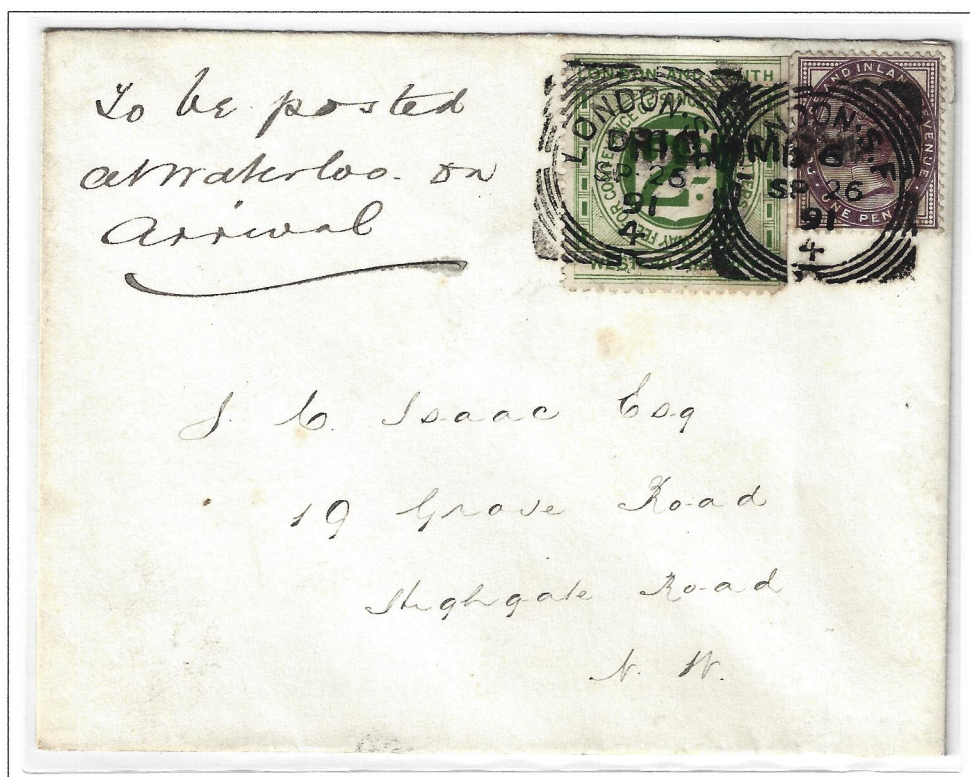 To be posted
at Waterloo. on
Arrival
LONDON AND SOUTH
WEST
LONDON. S. E
SP 26
91
4
LONDON. S. E
D 6
SP 26
91
4
AND INLAND REVENUE
ONE PENNY
J. C. Isaac Esq
19 Grove Road
Highgate Road
N. W.